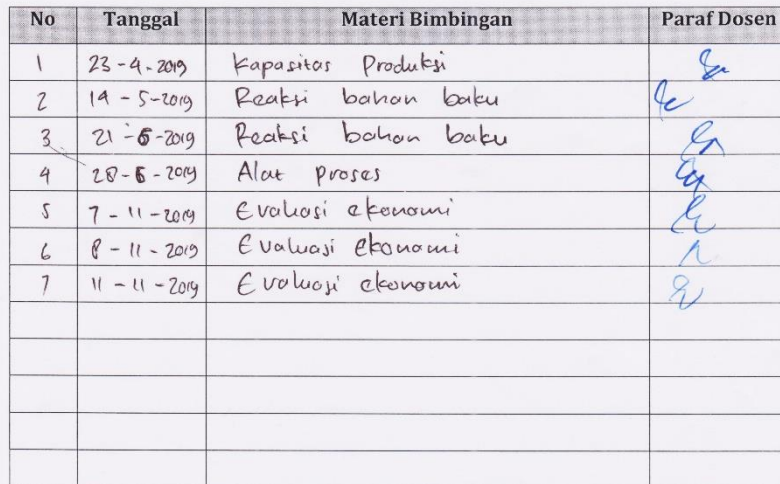 No Tanggal Materi Bimbingan Paraf Dosen
1 23-4-2019 Kapasitas Produksi
2 14-5-2019 Reaksi bahan baku
3 21-5-2019 Reaksi bahan baku
4 28-5-2019 Alat proses
5 7-11-2019 Evaluasi ekonomi
6 8-11-2019 Evaluasi ekonomi
7 11-11-2019 Evaluasi ekonomi